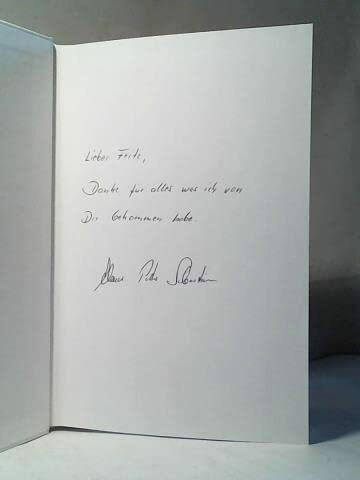 Lieber Fritz,
Danke für alles was ich von
Dir bekommen habe.
Klaus Peter